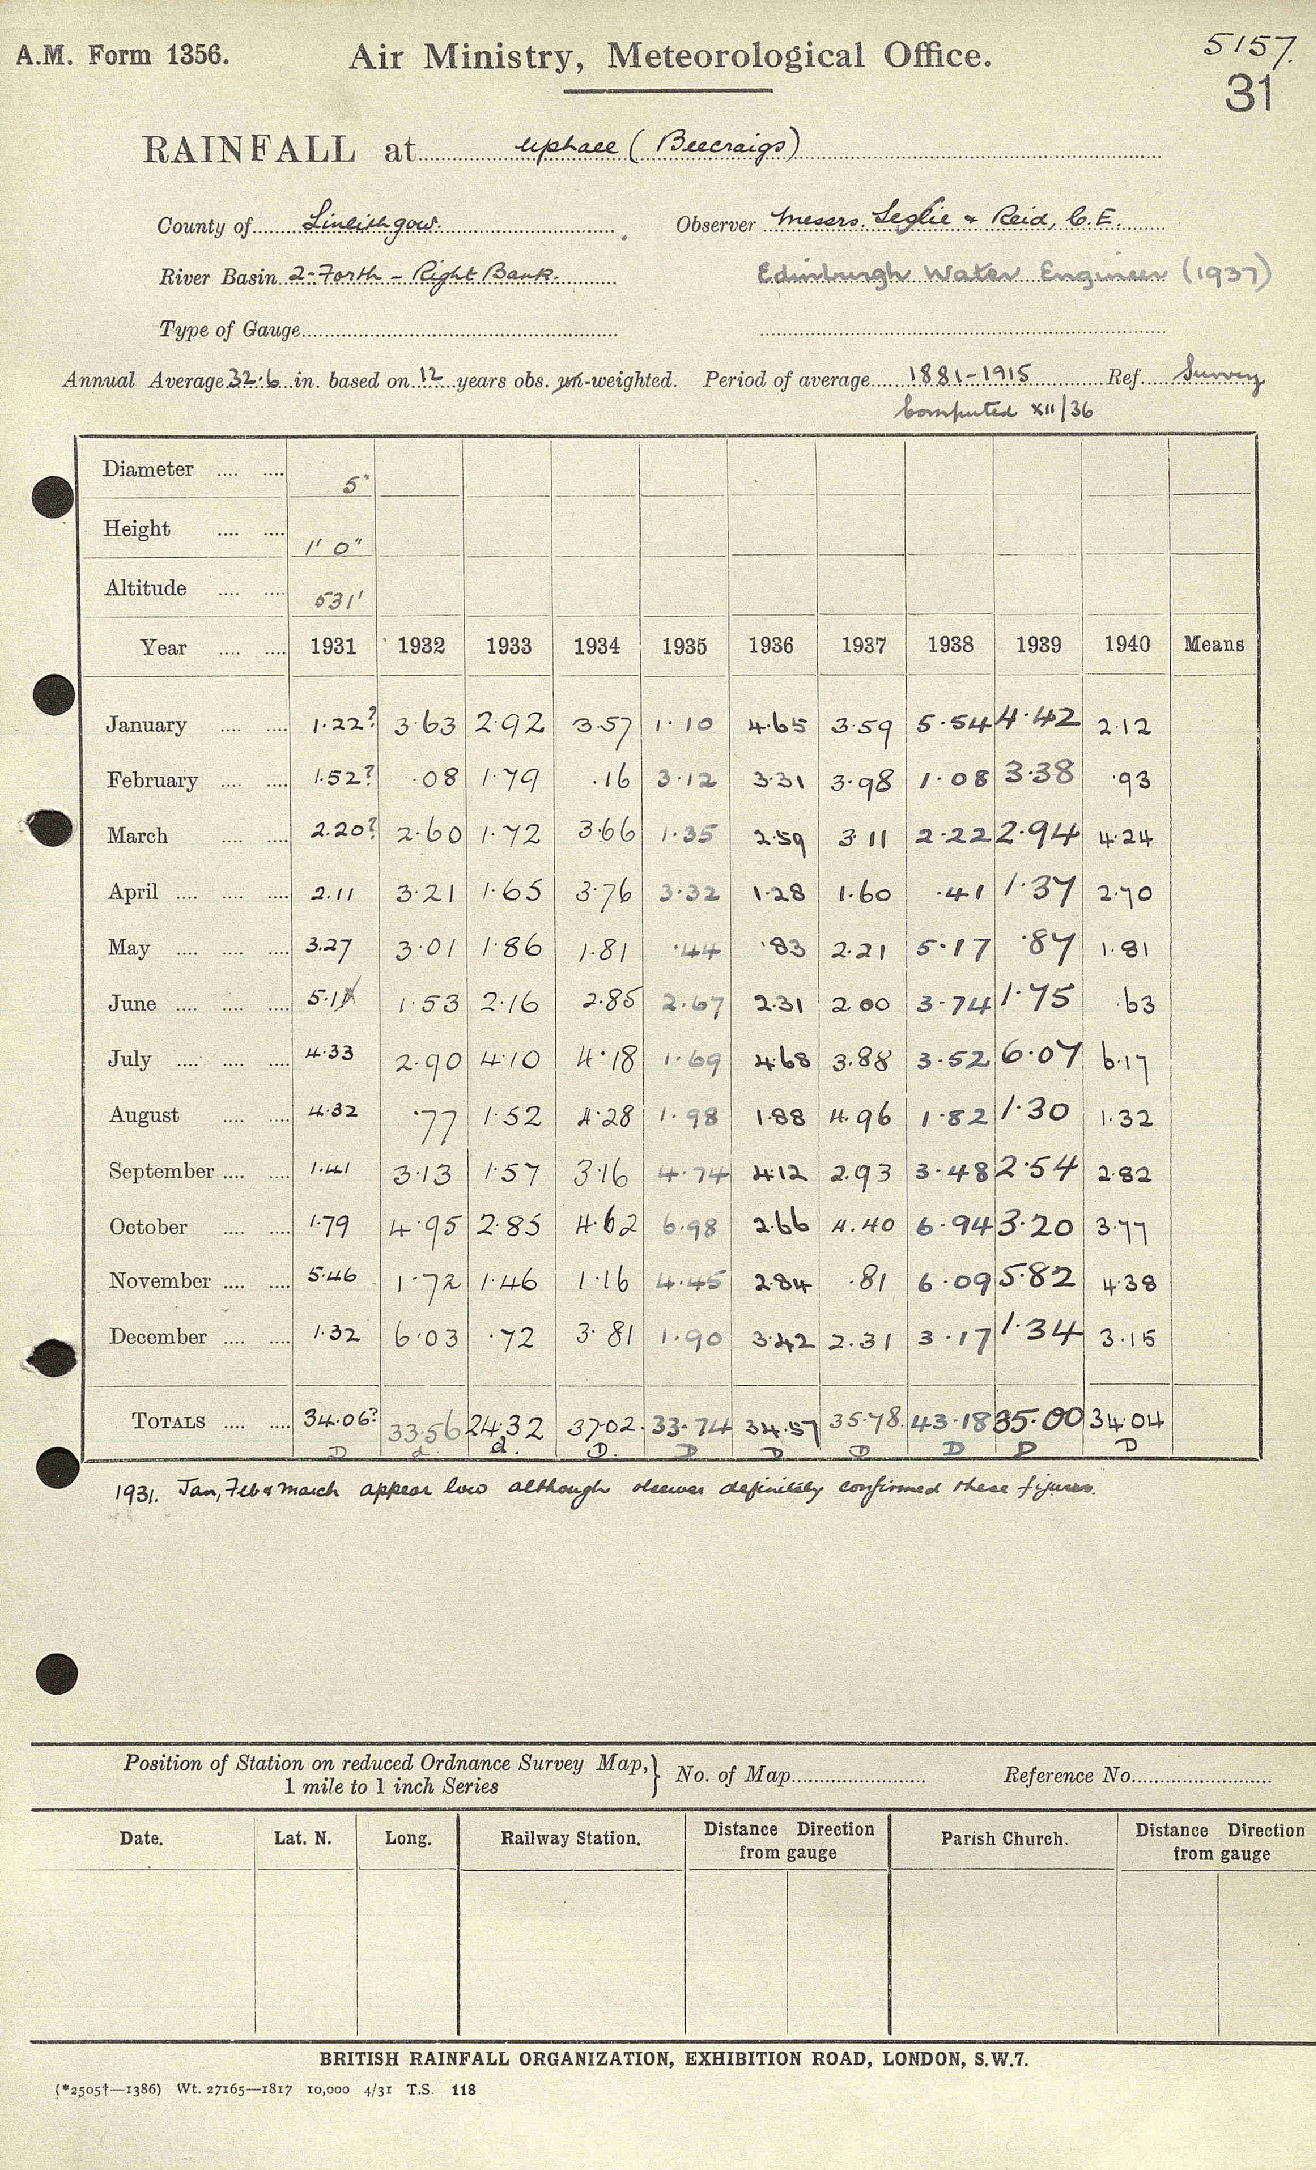 A.M. Form 1356. Air Ministry, Meteorological Office. 5157.
31
RAINFALL at Uphall (Beecraigs)
County of Linlithgow. Observer Messrs. Leslie & Reid, C.E.
River Basin 2-Forth - Right Bank. Edinburgh Water Engineer (1937)
Type of Gauge
Annual Average 32.6 in. based on 12 years obs. un-weighted. Period of average 1881-1915 Ref. Survey
Computed XII/36
Diameter 5"
Height 1' 0"
Altitude 531'
Year 1931 1932 1933 1934 1935 1936 1937 1938 1939 1940 Means
January 1.22? 3.63 2.92 3.57 1.10 4.65 3.59 5.54 4.42 2.12
February 1.52? .08 1.79 .16 3.12 3.31 3.98 1.08 3.38 .93
March 2.20? 2.60 1.72 3.66 1.35 2.59 3.11 2.22 2.94 4.24
April 2.11 3.21 1.65 3.76 3.32 1.28 1.60 .41 1.37 2.70
May 3.27 3.01 1.86 1.81 .44 .83 2.21 5.17 .87 1.81
June 5.11 1.53 2.16 2.85 2.67 2.31 2.00 3.74 1.75 .63
July 4.33 2.90 4.10 4.18 1.69 4.68 3.88 3.52 6.07 6.17
August 4.32 .77 1.52 4.28 1.98 1.88 4.96 1.82 1.30 1.32
September 1.41 3.13 1.57 3.16 4.74 4.12 2.93 3.48 2.54 2.82
October 1.79 4.95 2.85 4.62 6.98 2.66 4.40 6.94 3.20 3.77
November 5.46 1.72 1.46 1.16 4.45 2.84 .81 6.09 5.82 4.38
December 1.32 6.03 .72 3.81 1.90 3.42 2.31 3.17 1.34 3.15
TOTALS 34.06? 33.56 24.32 37.02 33.74 34.57 35.78 43.18 35.00 34.04
D d. d. D. D D D D D D
1931. Jan, Feb & March appear low although observer definitely confirmed these figures.
Position of Station on reduced Ordnance Survey Map, } No. of Map Reference No.
1 mile to 1 inch Series
Date. Lat. N. Long. Railway Station. Distance Direction from gauge Parish Church. Distance Direction from gauge
BRITISH RAINFALL ORGANIZATION, EXHIBITION ROAD, LONDON, S.W.7.
(*2505†—1386) Wt. 27165—1817 10,000 4/31 T.S. 118